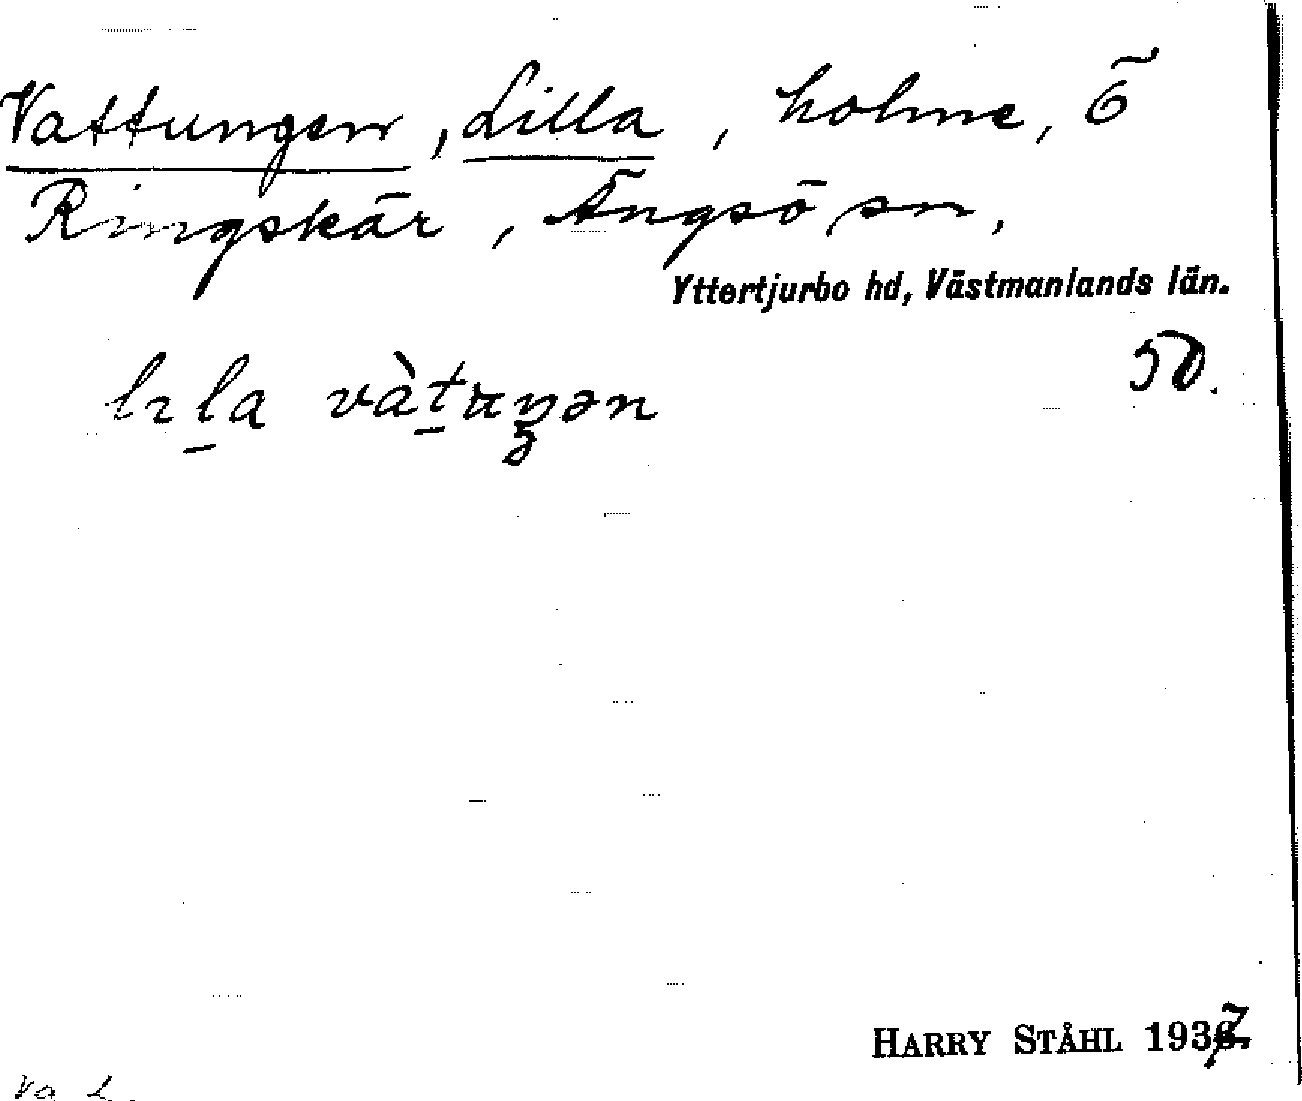 Vattungen, Lilla, holme, Ö
Ringskär, Ängsö sn,
Yttertjurbo hd, Västmanlands län.
50.
HARRY STÅHL 1937